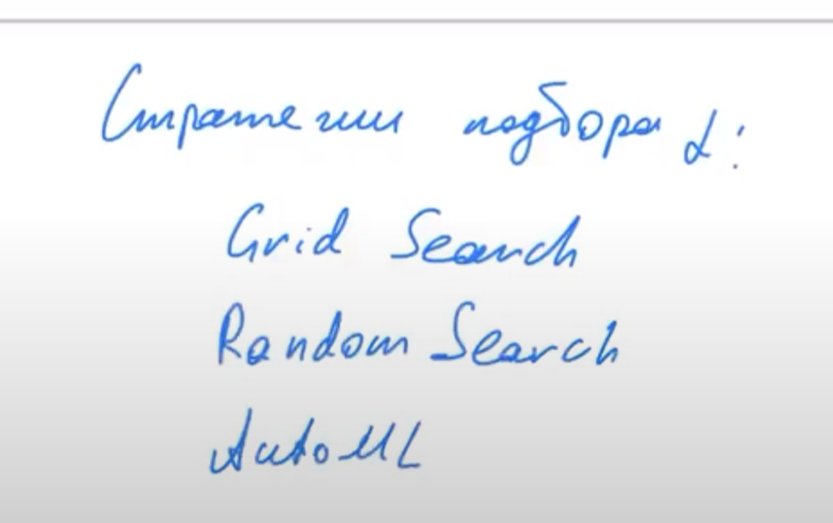 Стратегии подбора α:
Grid Search
Random Search
AutoML